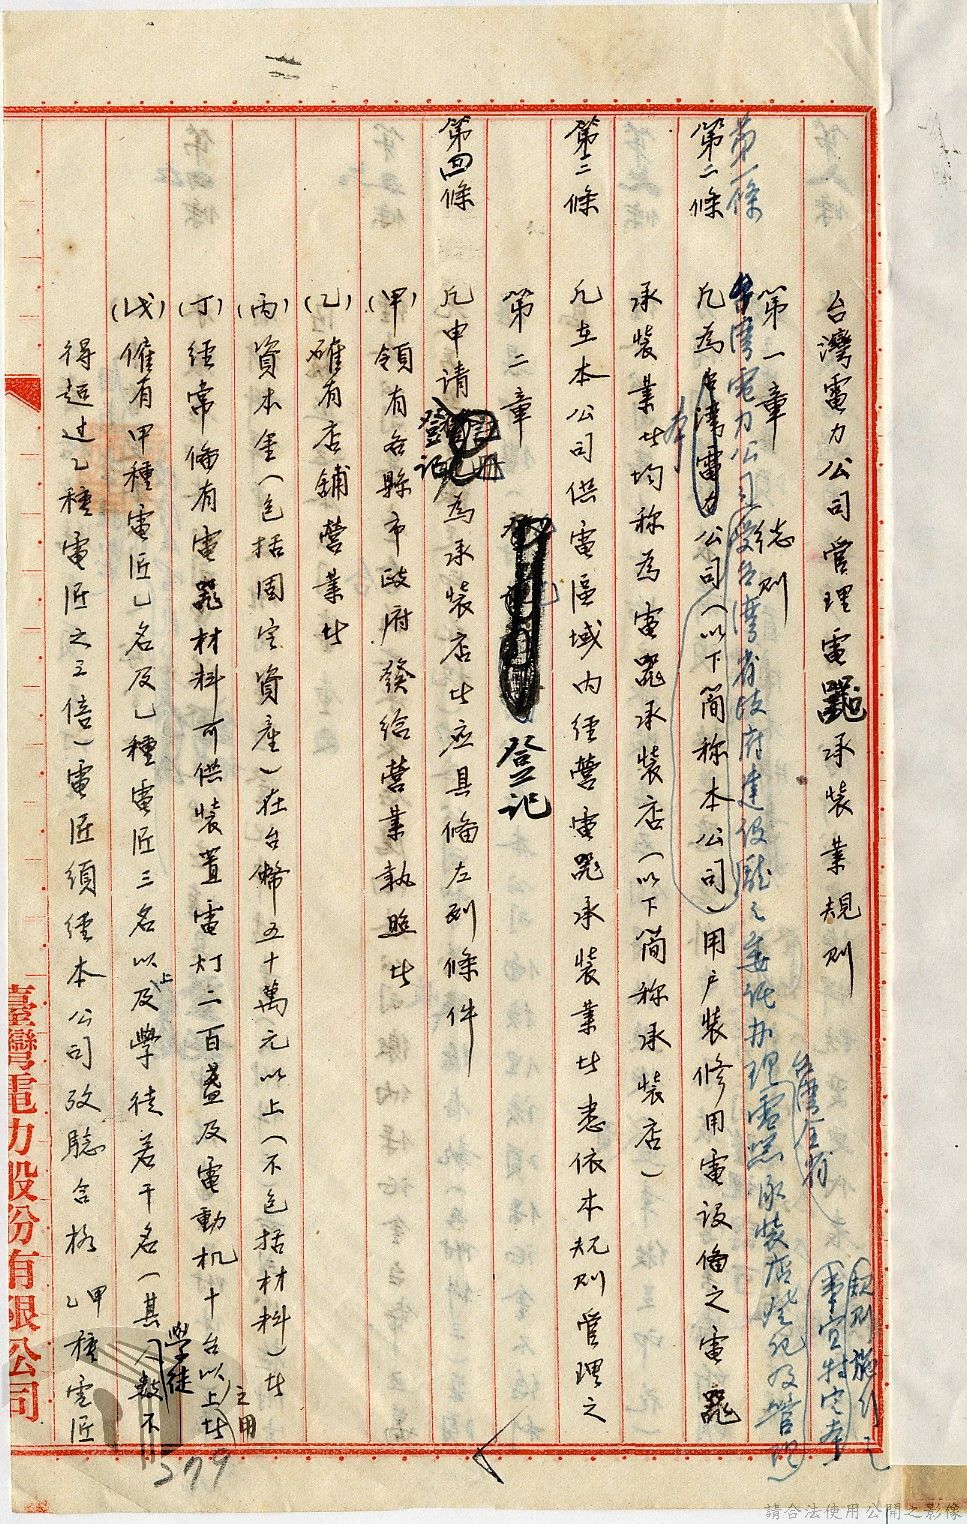 台灣電力公司管理電器承裝業規則
第一章 總則
第一條 台灣電力公司受台灣省政府建設廳之委託办理台灣全省電器承裝店登記及管理事宜特定本規則施行之
第二條 凡為台灣電力本公司(以下简称本公司)用户裝修用電设備之電器
承裝業者均称為電器承裝店(以下简称承裝店)
第三條 凡在本公司供電區域内經營電器承裝業者悉依本規则管理之
第二章 登记
第四條 凡申请登记為承裝店者应具備左列條件
(甲)領有各縣市政府發给營業執照者
(乙)確有店鋪營業者
(丙)資本金(包括固定資產)在台幣五十萬元以上(不包括材料)者
(丁)經常備有電器材料可供裝置電灯二百盞及電動机十台以上之用者
(戊)僱有甲種電匠乙名及乙種電匠三名以上及學徒若干名(其學徒人數不
得超过乙種電匠之三倍)電匠须經本公司攷驗合格甲乙種電匠
279
臺灣電力股份有限公司
請合法使用公開之影像